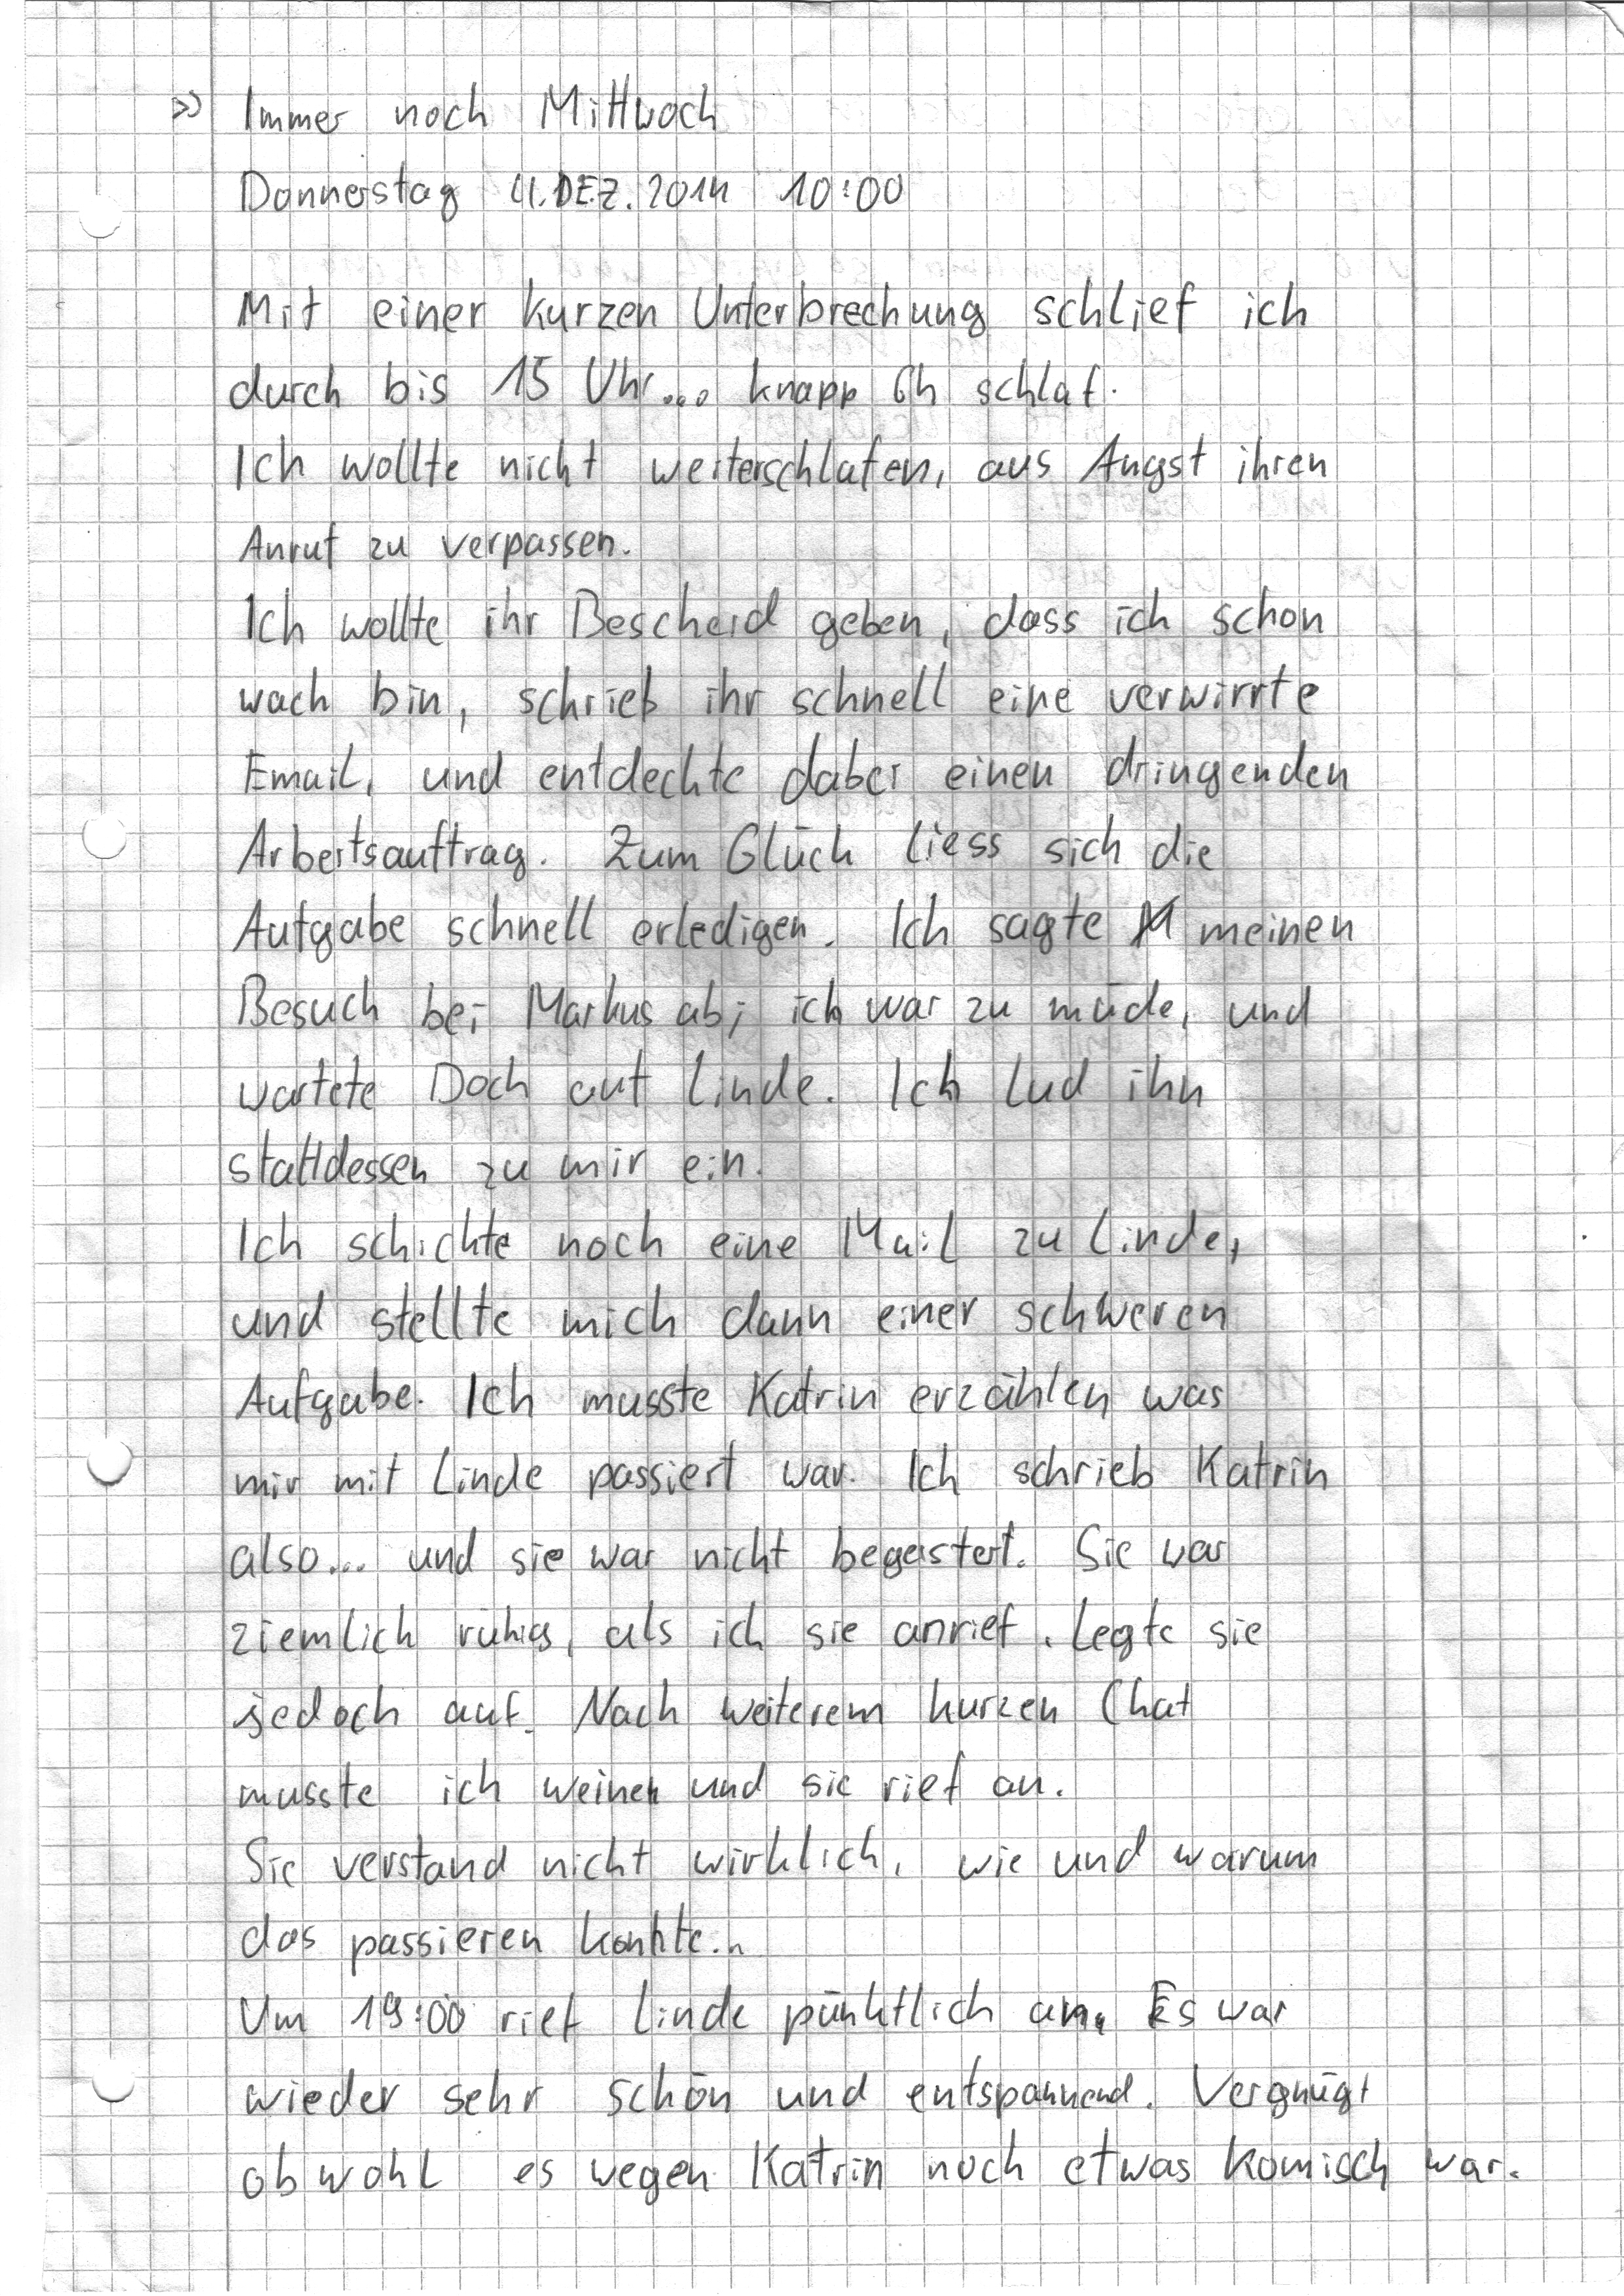 >> Immer noch Mittwoch
Donnerstag 11.DEZ.2014 10:00
Mit einer kurzen Unterbrechung schlief ich
durch bis 15 Uhr... knapp 6h schlaf.
Ich wollte nicht weiterschlafen, aus Angst ihren
Anruf zu verpassen.
Ich wollte ihr Bescheid geben, dass ich schon
wach bin, schrieb ihr schnell eine verwirrte
Email, und entdeckte dabei einen dringenden
Arbeitsauftrag. Zum Glück liess sich die
Aufgabe schnell erledigen. Ich sagte meinen
Besuch bei Markus ab; ich war zu müde, und
wartete Doch auf Linde. Ich lud ihn
stattdessen zu mir ein.
Ich schickte noch eine Mail zu Linde,
und stellte mich dann einer schweren
Aufgabe. Ich musste Katrin erzählen was
mir mit Linde passiert war. Ich schrieb Katrin
also... und sie war nicht begeistert. Sie war
ziemlich ruhig, als ich sie anrief. Legte sie
jedoch auf. Nach weiterem kurzen Chat
musste ich weinen und sie rief an.
Sie verstand nicht wirklich, wie und warum
das passieren konnte...
Um 19:00 rief Linde pünktlich an. Es war
wieder sehr schön und entspannend. Vergnügt
obwohl es wegen Katrin noch etwas komisch war.